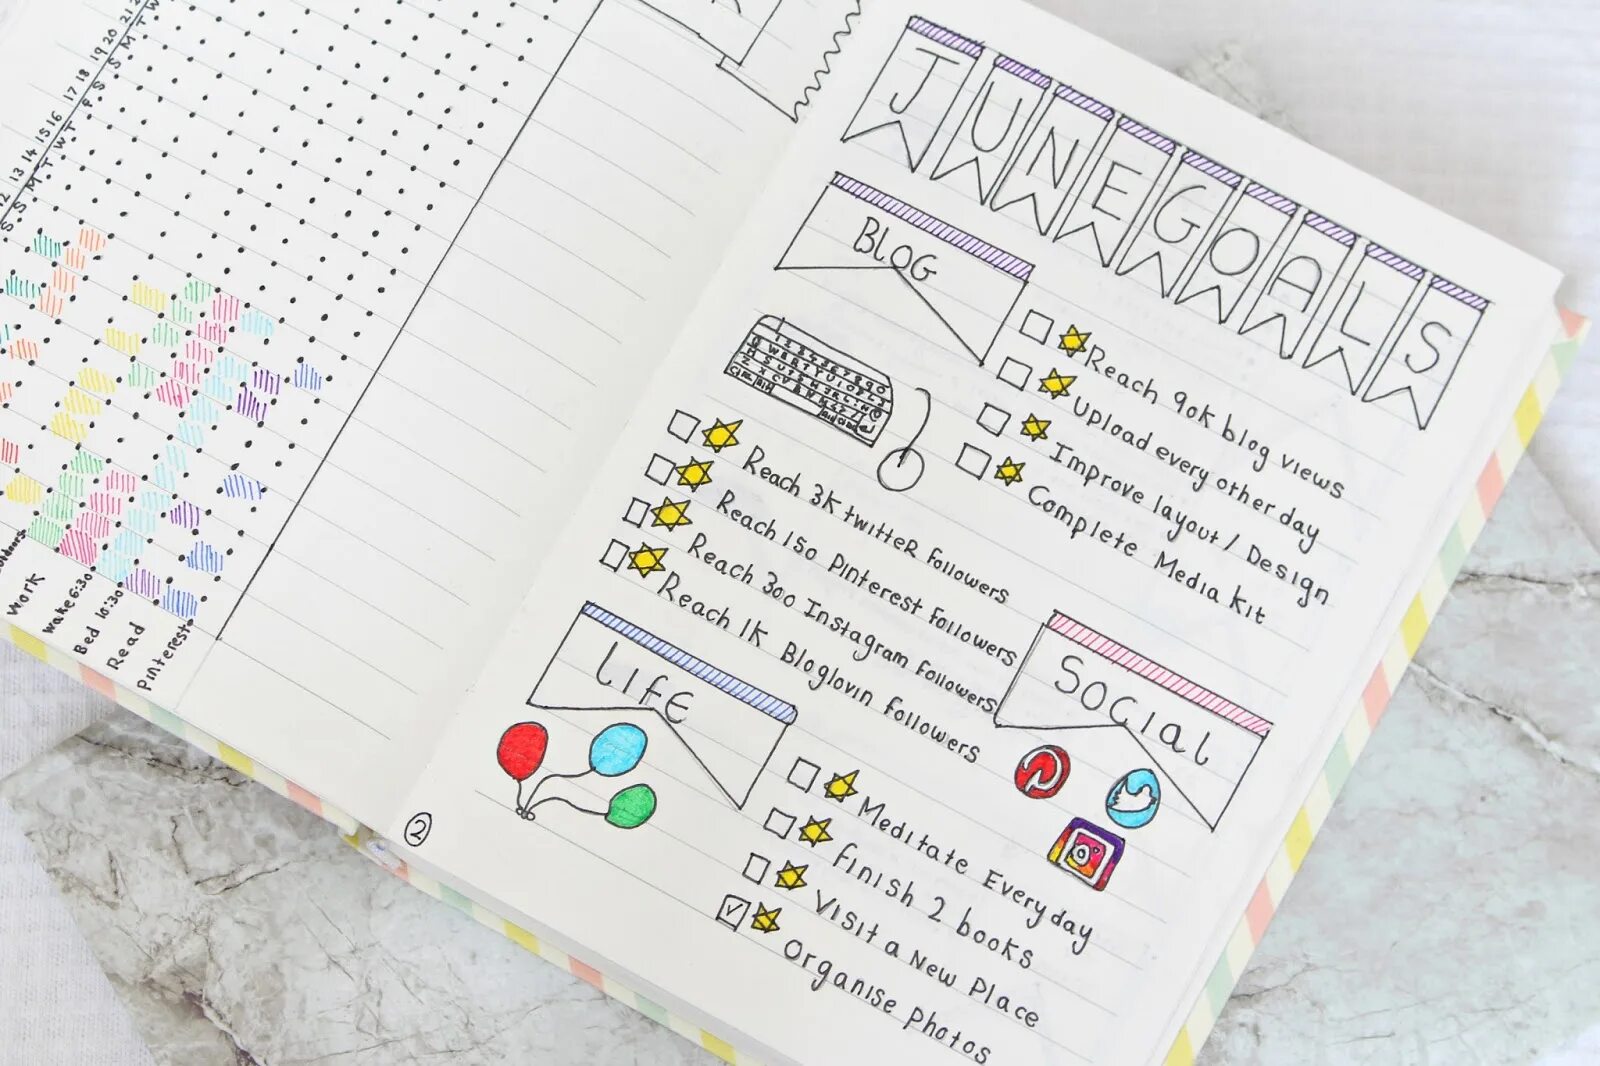 12 13 14 15 16 17 18 19 20 21
S S M T W T F S S M T W
Work
Wake 6:30
Bed 10:30
Read
Pinterest
JUNE GOALS
BLOG
Reach 90K blog views
Upload every other day
Improve layout / Design
Complete Media Kit
1 2 3 4 5 6 7 8 9 0
Reach 3K twitter followers
Reach 150 Pinterest followers
Reach 300 Instagram followers
Reach 1K Bloglovin followers
SOCial
LifE
Meditate Everyday
finish 2 books
Visit a New Place
Organise Photos
2